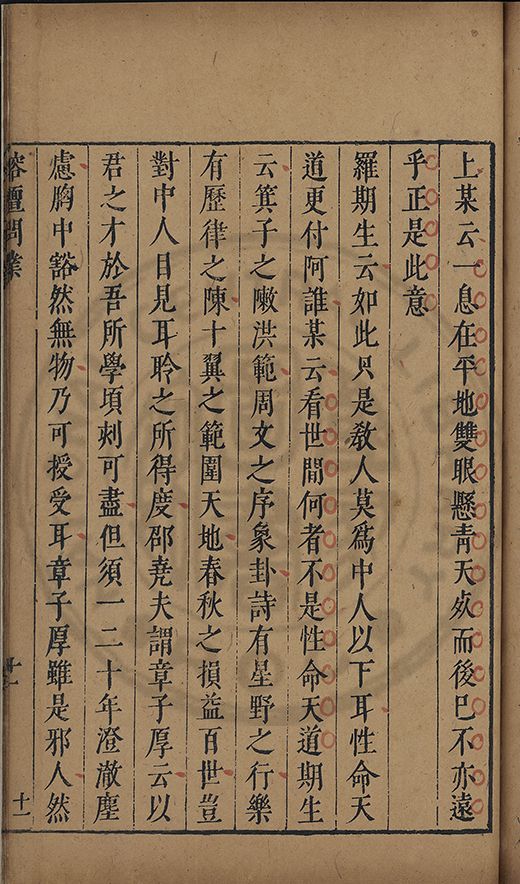 上某云一息在平地雙眼懸青天死而後已不亦遠
乎正是此意
羅期生云如此只是教人莫爲中人以下耳性命天
道更付阿誰某云看世間何者不是性命天道期生
云箕子之𠹌洪範周文之序象卦詩有星野之行樂
有歷律之陳十翼之範圍天地春秋之損益百世豈
對中人目見耳聆之所得度邵堯夫謂章子厚云以
君之才於吾所學頃刻可盡但須一二十年澄澈塵
慮胸中豁然無物乃可授受耳章子厚雖是邪人然
榕壇問業
十一